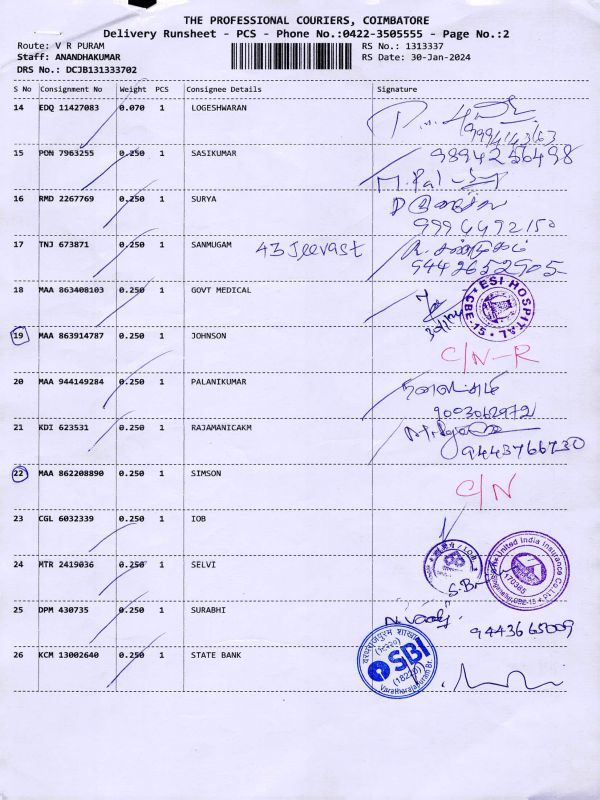 THE PROFESSIONAL COURIERS, COIMBATORE
Delivery Runsheet - PCS - Phone No.:0422-3505555 - Page No.:2
Route: V R PURAM
RS No.: 1313337
Staff: ANANDHAKUMAR
RS Date: 30-Jan-2024
DRS No.: DCJB131333702
S No Consignment No Weight PCS Consignee Details Signature
14 EDQ 11427083 0.070 1 LOGESHWARAN
9994143163
15 PON 7963255 0.250 1 SASIKUMAR 9894256498
16 RMD 2267769 0.250 1 SURYA
9994492150
17 TNJ 673871 0.250 1 SANMUGAM 43 Jeevast
9442652905
18 MAA 863408103 0.250 1 GOVT MEDICAL
ESI HOSPITAL CBE-15
19 MAA 863914787 0.250 1 JOHNSON
C/N-R
20 MAA 944149284 0.250 1 PALANIKUMAR
9003062972
21 KDI 623531 0.250 1 RAJAMANICAKM
9443766730
22 MAA 862208890 0.250 1 SIMSON
C/N
23 CGL 6032339 0.250 1 IOB
IOB
United India Insurance Co Ltd
170385
CBE-15
24 MTR 2419036 0.250 1 SELVI
25 DPM 430735 0.250 1 SURABHI
9443665009
26 KCM 13002640 0.250 1 STATE BANK
वरदराजपुरम शाखा
SBI
(18220)
Varatharajapuram Br.